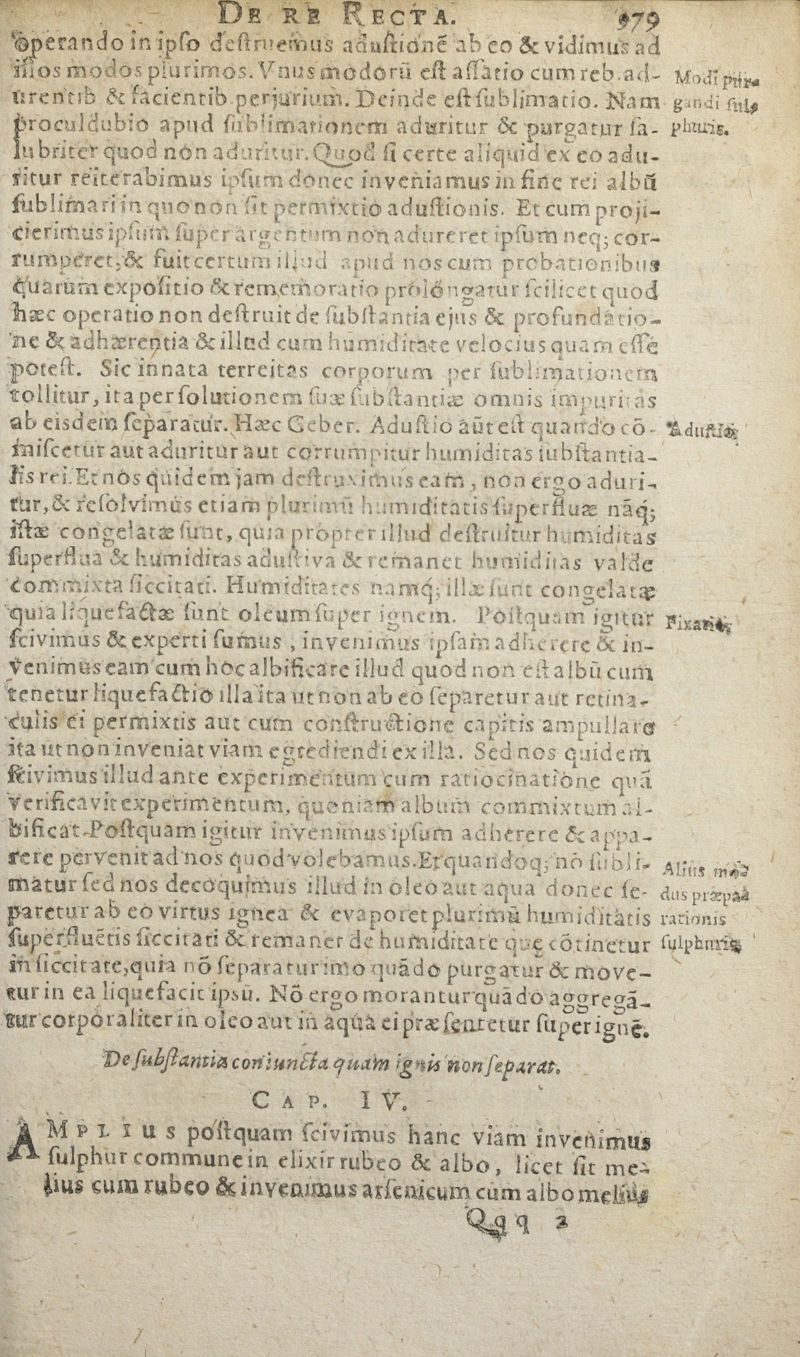 DE RE RECTA. 979
operando in ipſo deſtruemus aduſtionẽ ab eo & vidimus ad
illos modos plurimos. Vnus modorũ eſt aſſatio cum reb. ad-
Modi pur-
urentib. & facientib. perjurium. Deinde eſt ſublimatio. Nam
gandi ſul-
proculdubio apud ſublimationem aduritur & purgatur ſa-
phuris.
lubriter quod non aduritur. Quod ſi certe aliquid ex eo adu-
ritur reiterabimus ipſum donec inveniamus in fine rei albũ
ſublimari in quo non ſit permixtio aduſtionis. Et cum proji-
cierimus ipſum ſuper argentum non adureret ipſum neq; cor-
rumperet, & fuit certum illud apud nos cum probationibus
quarum expoſitio & rememoratio prolongatur ſcilicet quod
hæc operatio non deſtruit de ſubſtantia ejus & profundatio-
ne & adhærentia & illud cum humiditate velocius quam eſſe
poteſt. Sic innata terreitas corporum per ſublimationem
tollitur, ita per ſolutionem ſuæ ſubſtantiæ omnis impuritas
ab eisdem ſeparatur. Hæc Geber. Aduſtio aũt eſt quando cõ-
Aduſtio
miſcetur aut aduritur aut corrumpitur humiditas ſubſtantia-
lis rei. Et nos quidem jam deſtruximus eam, non ergo aduri-
tur, & reſolvimus etiam plurimũ humiditatis ſuperfluæ nãq;
iſtæ congelatæ ſunt, quia propter illud deſtruitur humiditas
ſuperflua & humiditas aduſtiva & remanet humiditas valde
commixta ſiccitati. Humiditates namq; illæ ſunt congelatæ
quia liquefactæ ſunt oleum ſuper ignem. Poſtquam igitur
ſcivimus & experti ſumus, invenimus ipſam adherere & in-
venimus eam cum hoc albificare illud quod non eſt albũ cum
tenetur liquefactio illa ita ut non ab eo ſeparetur aut retina-
culis ei permixtis aut cum conſtructione capitis ampullare
ita ut non inveniat viam egrediendi ex illa. Sed nos quidem
ſcivimus illud ante experimentum cum ratiocinatione quã
verificavit experimentum, quoniam album commixtum al-
bificat. Poſtquam igitur invenimus ipſum adherere & appa-
rere pervenit ad nos quod volebamus. Et quandoq; nõ ſubli-
Alius mo-
matur ſed nos decoquimus illud in oleo aut aqua donec ſe-
dus præpa-
paretur ab eo virtus ignea & evaporet plurimũ humiditatis
rationis
ſuperfluẽtis ſiccitati & remanet de humiditate quę cõtinetur
ſulphuris
in ſiccitate, quia nõ ſeparatur imo quãdo purgatur & move-
tur in ea liquefacit ipsũ. Nõ ergo morantur quãdo aggregã-
tur corporaliter in oleo aut in aqua ei præſentetur ſuper ignẽ.
De ſubſtantia coniuncta quam ignis non ſeparat.
CAP. IV.
AMPLIUS poſtquam ſcivimus hanc viam invenimus
ſulphur commune in elixir rubeo & albo, licet ſit me-
lius cum rubeo & invenimus arſenicum cum albo melius
Qqq 2